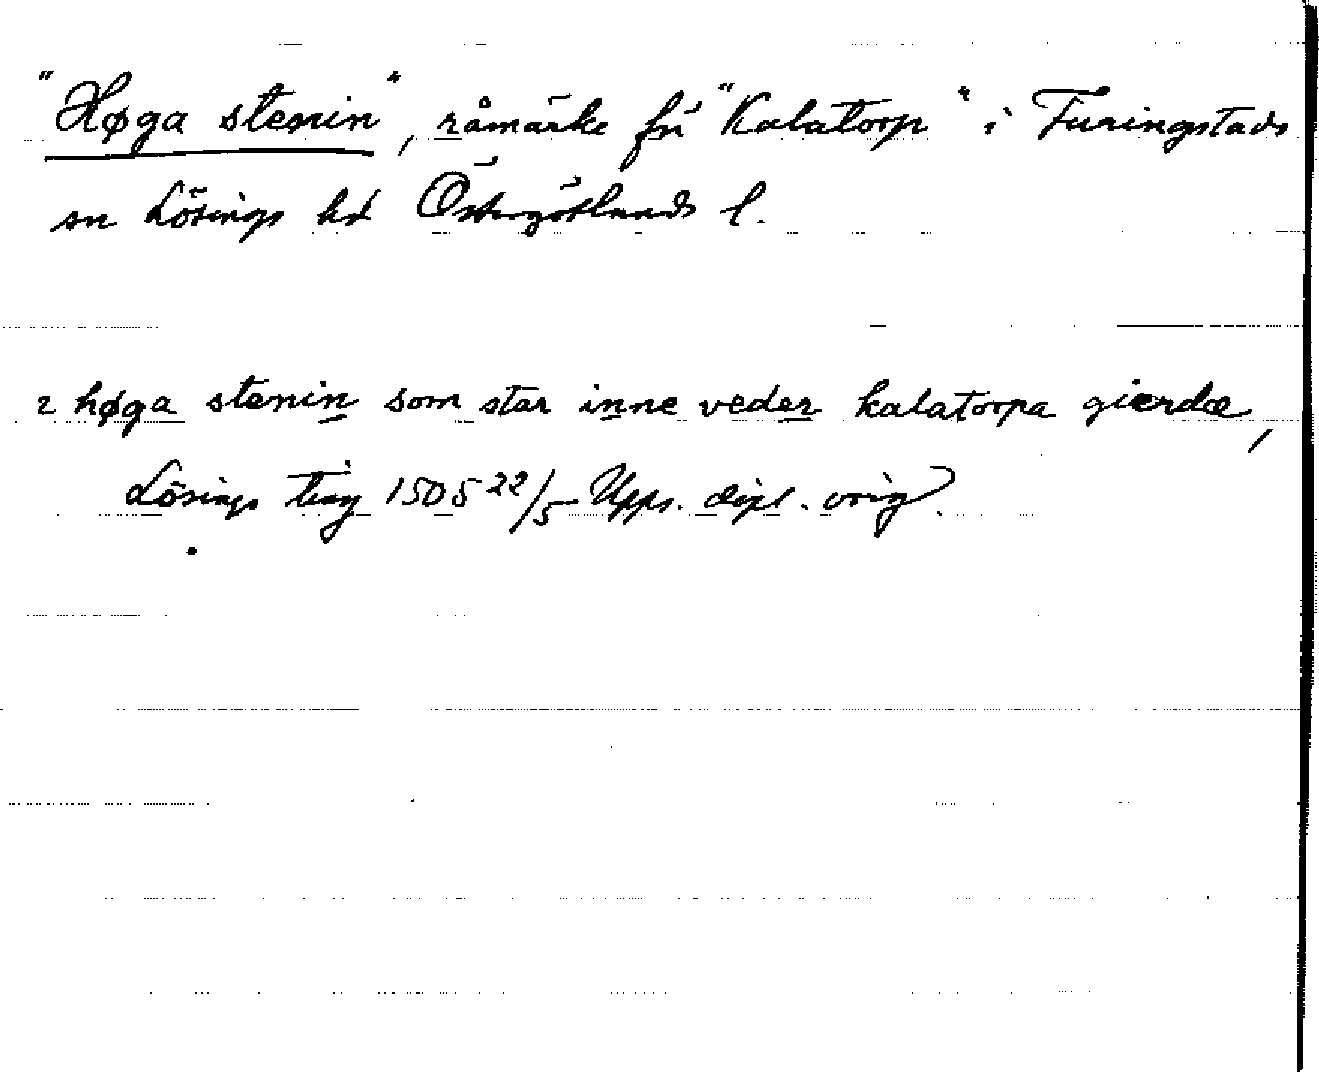 "Høga stenin", råmärke för "Kalatorp" i Furingstads
sn Lösings hd Östergötlands l.
2 høga stenin som star inne veder kalatorpa gierdæ,
Lösings ting 1505 22/5 Upps. dipl. orig.